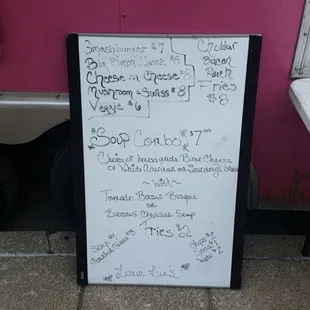 Smash burger $7
Big Bacon Classic $9
Cheese on Cheese $8
Mushroom & Swiss $8
Veggie $6
Cheddar
Bacon
Ranch
Fries
$8
*Soup Combo* $7.00
Choice of housemade Beer Cheese
or White American on Sourdough bread
~with~
Tomato Basil Bisque
or
Broccoli Cheddar Soup
Fries $2
Soup
Grilled Cheese
Chips
Soda
Water